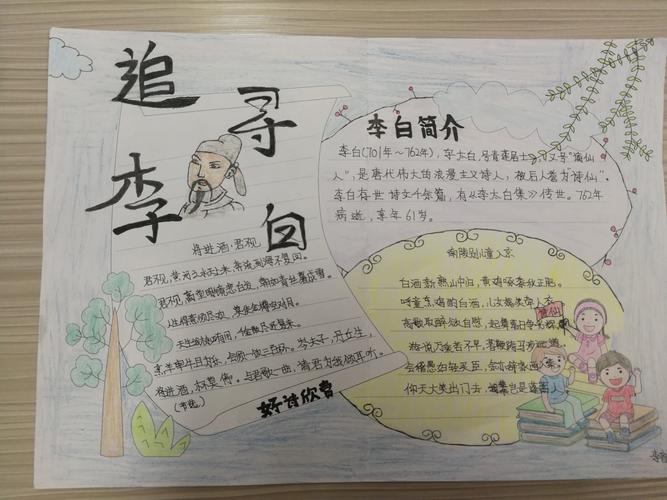 追寻李白
将进酒·君不见
君不见,黄河之水天上来,奔流到海不复回。
君不见,高堂明镜悲白发,朝如青丝暮成雪。
人生得意须尽欢,莫使金樽空对月。
天生我材必有用,千金散尽还复来。
烹羊宰牛且为乐,会须一饮三百杯。岑夫子,丹丘生,
将进酒,杯莫停。与君歌一曲,请君为我倾耳听。
(节选)
好诗欣赏
李白简介
李白(701年~762年),字太白,号青莲居士,又号"谪仙
人",是唐代伟大的浪漫主义诗人,被后人誉为"诗仙"。
李白存世诗文千余篇,有《李太白集》传世。762年
病逝,享年61岁。
南陵别儿童入京
白酒新熟山中归,黄鸡啄黍秋正肥。
呼童烹鸡酌白酒,儿女嬉笑牵人衣。
高歌取醉欲自慰,起舞落日争光辉。
游说万乘苦不早,著鞭跨马涉远道。
会稽愚妇轻买臣,余亦辞家西入秦。
仰天大笑出门去,我辈岂是蓬蒿人。
诗仙